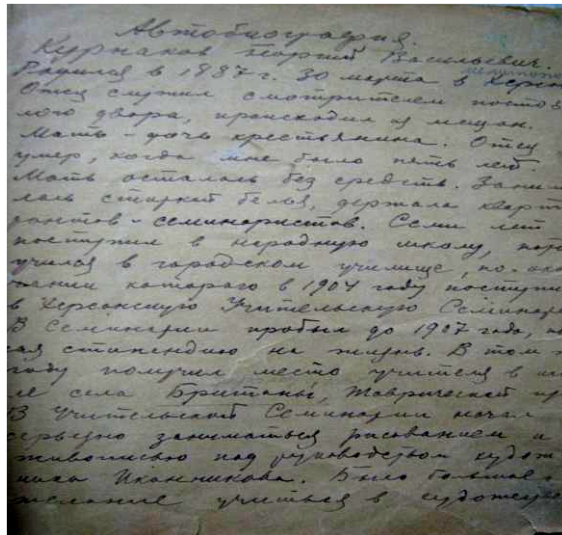 Автобиография.
Курнаков Георгий Васильевич.
Родился в 1887 г. 30 марта в Херсо
Отец служил смотрителем постоя
лого двора, происходил из мещан.
Мать - дочь крестьянина. Отец
умер, когда мне было пять лет.
Мать осталась без средств. Заним
лась стиркой белья, держала кварти
рантов - семинаристов. Семи лет
поступил в народную школу, пот
учился в городском училище, по око
чании которого в 1904 году поступи
в Херсонскую Учительскую Семинари
В Семинарии пробыл до 1907 года, по
ая стипендию на жизнь. В том
году получил место учителя в
ле села Британы, Таврической
В Учительской Семинарии начал
серьезно заниматься рисованием и
живописью под руководством худож
ника Иконникова. Было большое
желание учиться в художес